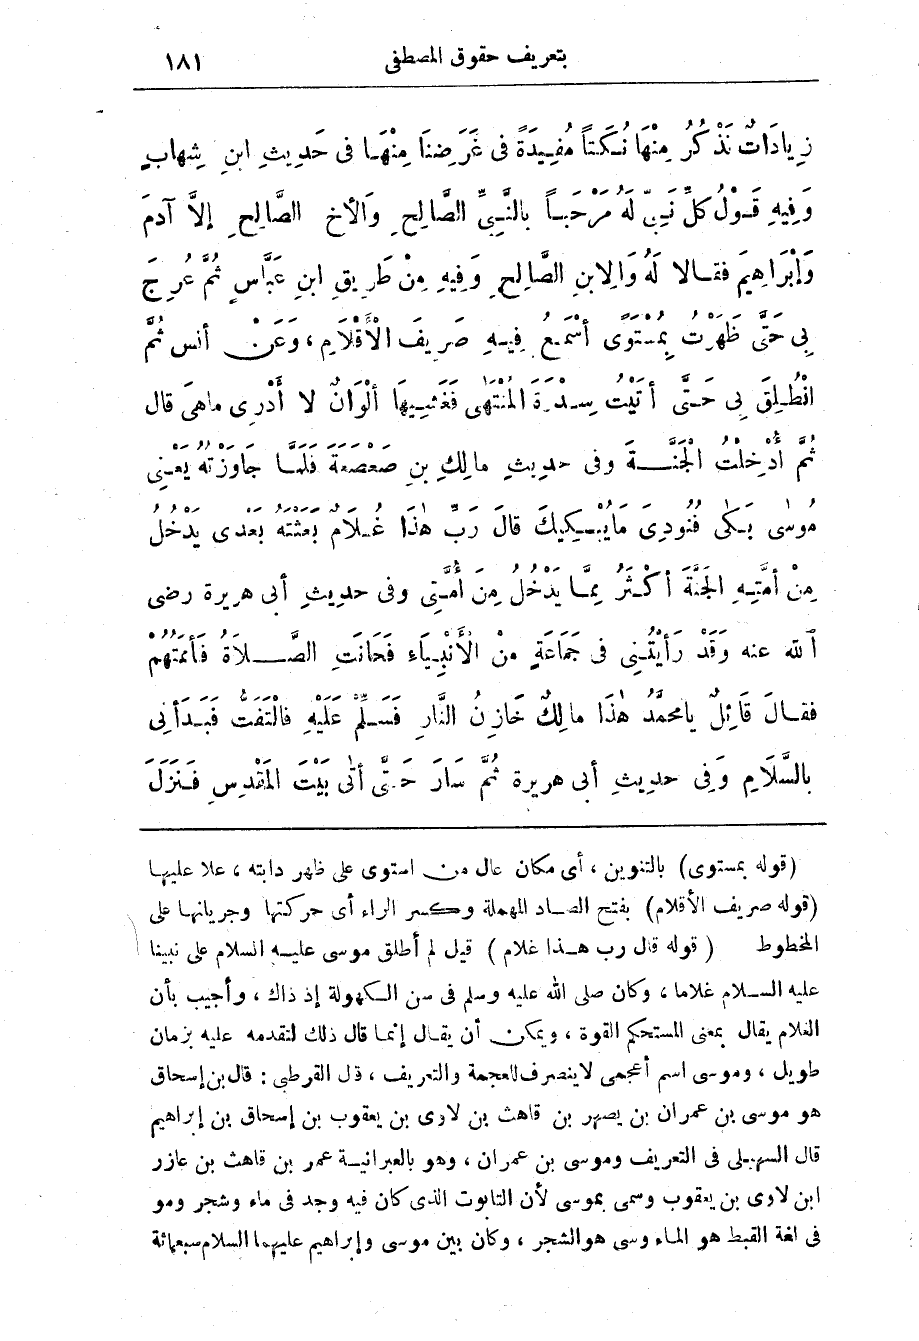 بتعريف حقوق المصطفى ١٨١
زِيادَاتٌ نَذْكُرُ مِنْهَا نُكَتاً مُفِيدَةً فى غَرَضِنَا مِنْهَا فى حَدِيثِ ابنِ شِهابٍ
وَفِيهِ قَوْلُ كلِّ نَبِىّ لَهُ مَرْحَباً بالنَّبِىِّ الصَّالِحِ والأخ الصَّالِحِ إلاَّ آدمَ
وَإبْرَاهِيمَ فقالا لَهُ وَالِابنِ الصَّالِحِ وَفِيهِ مِنْ طَرِيقِ ابنِ عَبَّاسٍ ثُمَّ عُرِجَ
بِى حَتَّى ظَهَرْتُ بِمُسْتَوًى أسْمَعُ فِيهِ صَرِيفَ الْأَقْلَامِ، وَعَنْ أنس ثُمَّ
انْطُلِقَ بى حَتَّى أتَيْتُ سِدْرَةَ المُنْتَهٰى فَغَشِيهَا ألْوَانٌ لا أَدْرِى ماهىَ قال
ثُمَّ أُدْخِلْتُ الْجَنَّةَ وفى حديثِ مالِكِ بنِ صَعْصَعَةَ فَلَمَّا جَاوَزْتُهُ يَعْنِى
مُوسٰى بَكَى فَنُودِىَ مَايُبْكِيكَ قالَ رَبِّ هٰذَا غُلَامٌ بَعَثْتَهُ بَعْدِى يَدْخُلُ
مِنْ أمَّتِهِ الجَنَّةَ أكْثَرُ مِمَّا يَدْخُلُ مِنَ أُمَّتِى وفى حديثِ أبى هريرة رضى
الله عنه وَقَدْ رَأيْتُنِى فى جَمَاعَةٍ منْ الأَنْبِيَاءِ فَحَانَتِ الصَّلاةُ فَأَمَمْتُهُمْ
فقالَ قَائِلٌ يامحمَّدُ هٰذَا مالِكٌ خَازِنُ النَّارِ فَسَلِّمْ عَلَيْهِ فالْتَفَتُّ فَبَدَأنِى
بالسَّلَامِ وَفى حديثِ أبى هريرة ثُمَّ سَارَ حَتَّى أتٰى بَيْتَ المَقْدِسِ فَنَزَلَ
(قوله بمستوى) بالتنوين، أى مكان عال من استوى على ظهر دابته، علا عليها
(قوله صريف الأقلام) بفتح الصاد المهملة وكسر الراء أى حركتها وجريانها على
المخطوط (قوله قال رب هذا غلام) قيل لم أطلق موسى عليه السلام على نبينا
عليه السلام غلاما، وكان صلى الله عليه وسلم فى سن الكهولة إذ ذاك، وأجيب بأن
الغلام يقال بمعنى المستحكم القوة، ويمكن أن يقال إنما قال ذلك لتقدمه عليه بزمان
طويل، وموسى اسم أعجمى لاينصرف للعجمة والتعريف، قال القرطبى: قال بن إسحاق
هو موسى بن عمران بن يصهر بن قاهث بن لاوى بن يعقوب بن إسحاق بن إبراهيم
قال السهيلى فى التعريف وموسى بن عمران، وهو بالعبرانية عمر بن قاهث بن عازر
ابن لاوى بن يعقوب وسمى بموسى لأن التابوت الذى كان فيه وجد فى ماء وشجر ومو
فى لغة القبط هو الماء وسى هو الشجر، وكان بين موسى وإبراهيم عليهما السلام سبعمائة